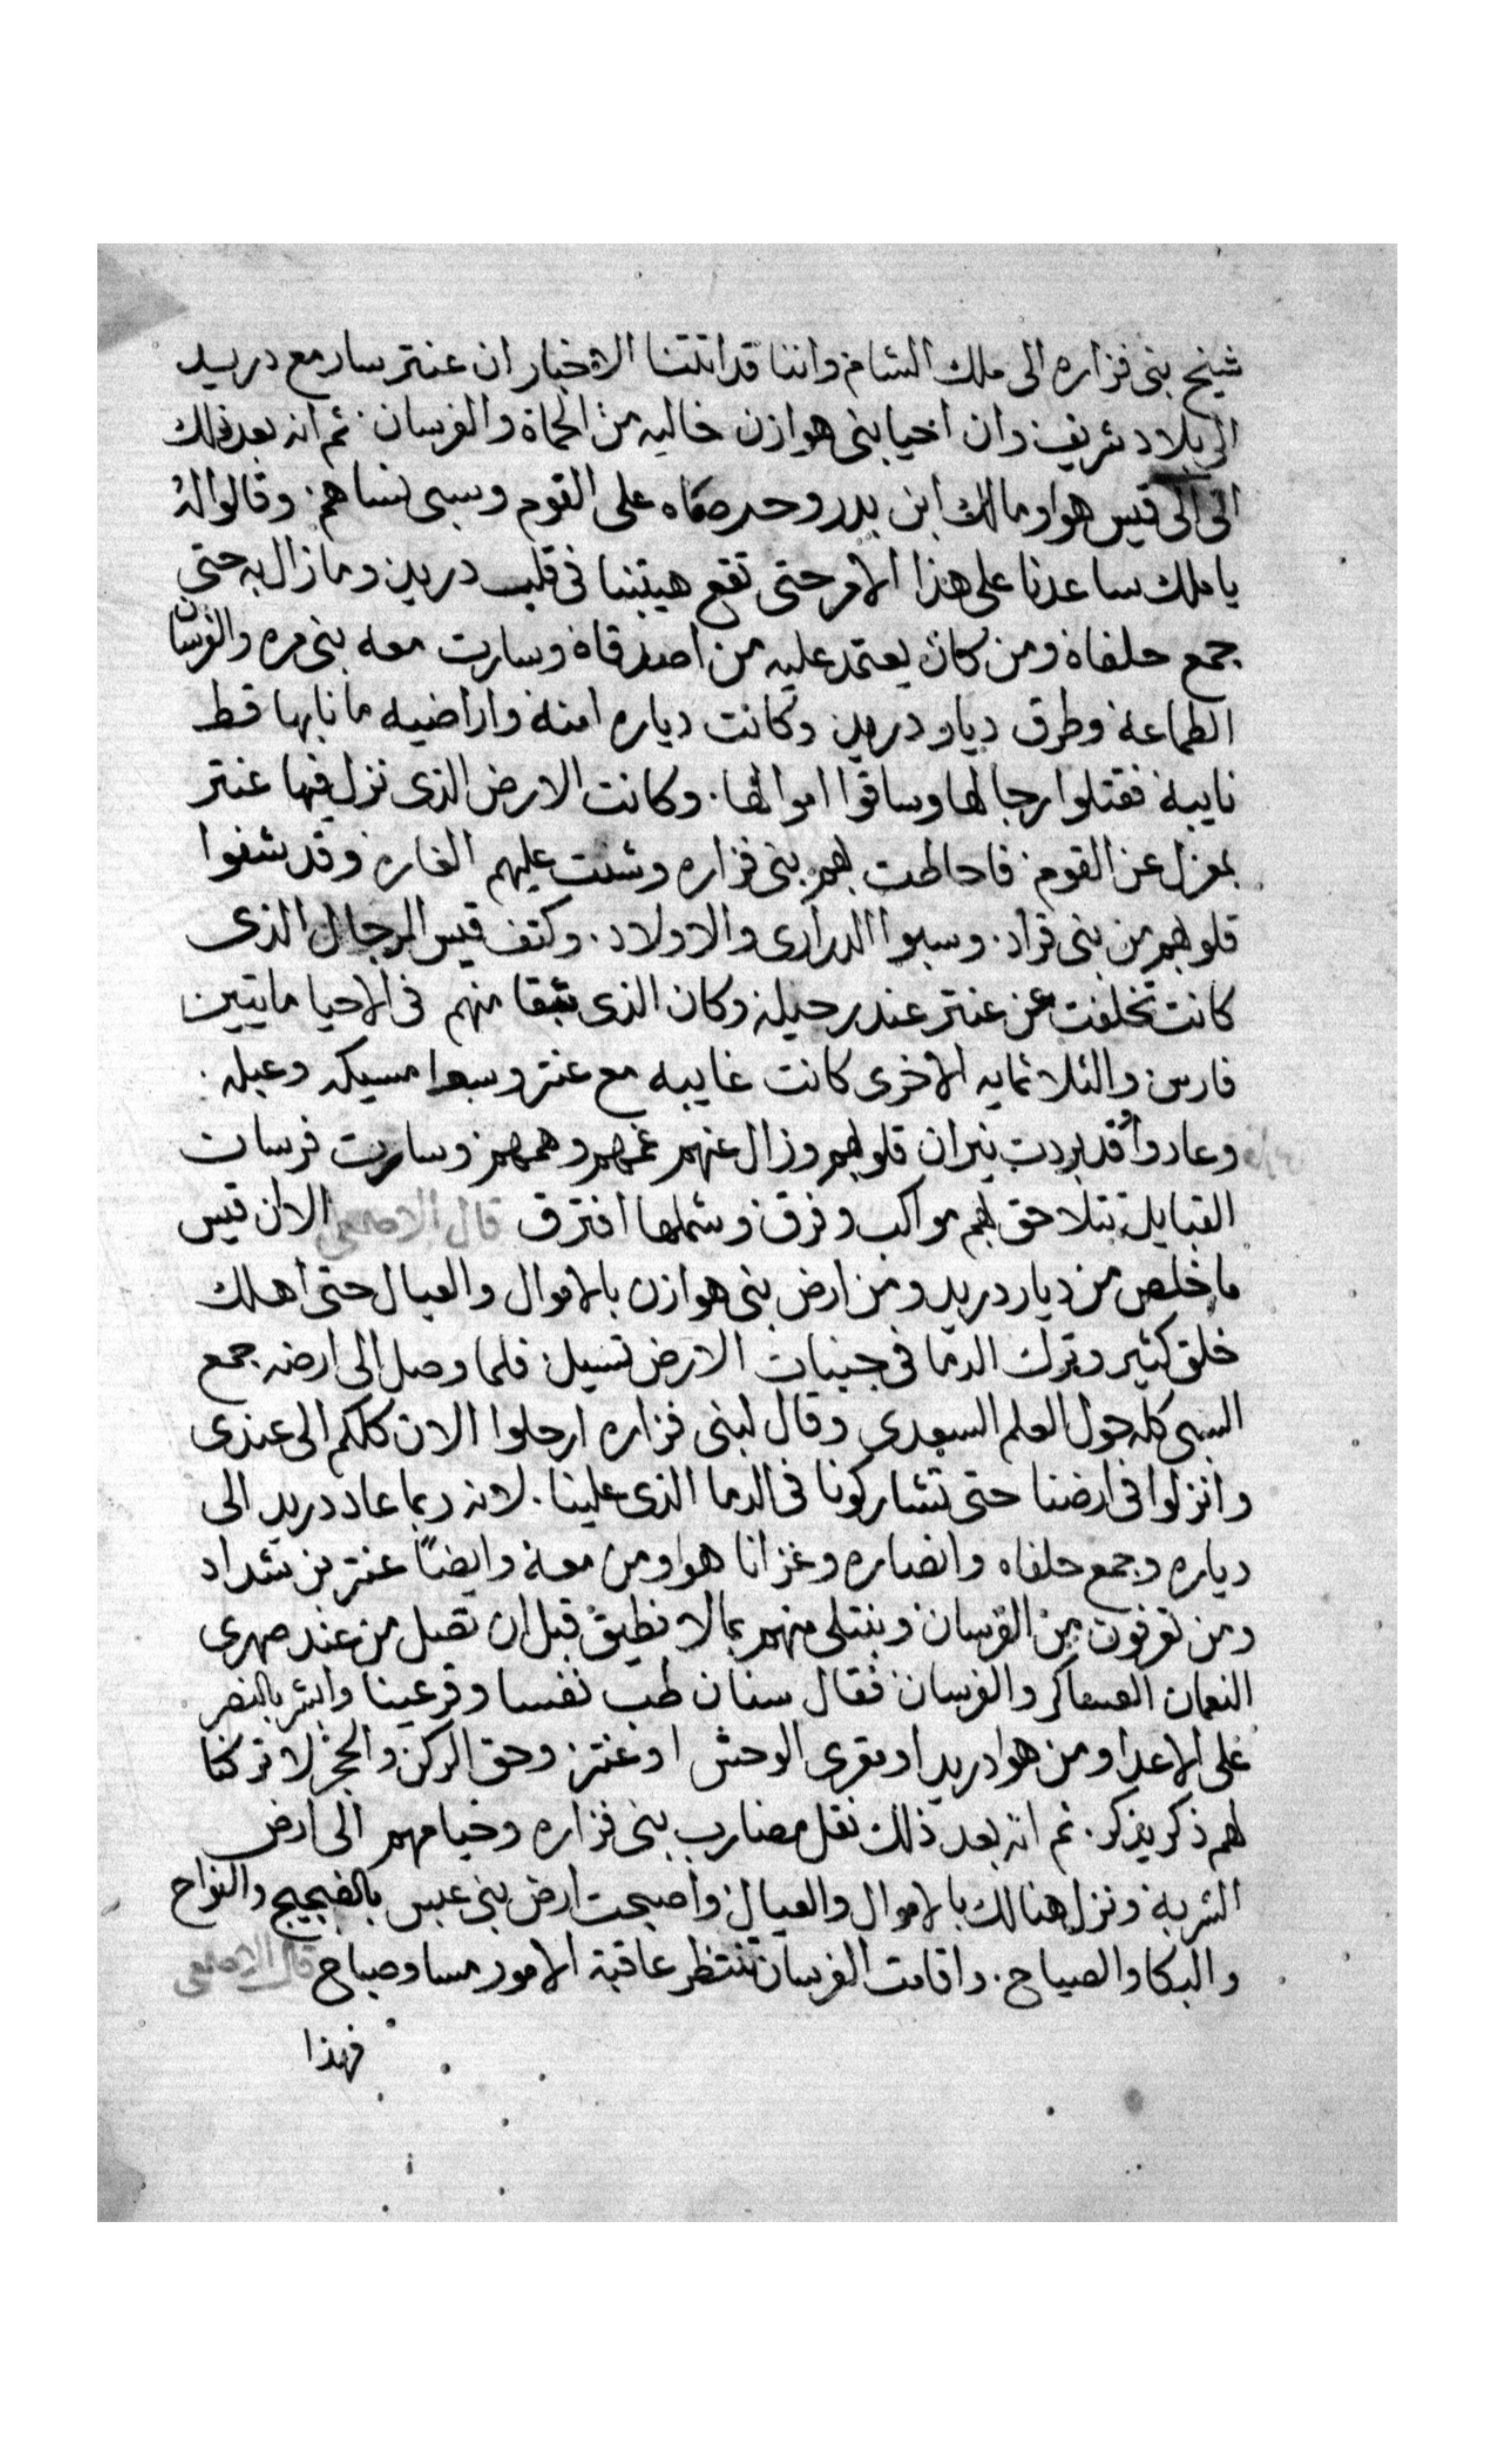 شيخ بنى فزاره الى ملك الشام واننا قد اتتنا الاخبار ان عنتر سار مع دريد
الى بلاد شريف وان احيا بنى هوازن خاليه من الحماة والفرسان ثم انه بعد ذلك
اتى الى قيس هوا ومالك ابن بدر وحرصاه على القوم وسبى نساهم وقالوا لهُ
يا ملك ساعدنا على هذا الامر حتى تقع هيبتنا فى قلب دريد وما زال به حتى
جمع حلفاة ومن كان يعتمد عليه من اصدقاة وسارت معه بنى مره والفرسان
الطماعة وطرق ديار دريد وكانت دياره امنة واراضيه ما نابها قط
نايبة فقتلوا رجالها وساقوا اموالها. وكانت الارض الذى نزل فيها عنتر
بمعزل عن القوم فاحاطت بهم بنى فزاره وشنت عليهم الغاره وقد شفوا
قلوبهم من بنى قراد. وسبوا الدرارى والاولاد. وكتف قيس الرجال الذى
كانت تخلفت عن عنتر عند رحيله وكان الذى تبقا منهم فى الاحيا مايتين
فارس والثلاثمايه الاخرى كانت غايبه مع عنتر وسبوا مسيكه وعبله.
وعادوا وقد بردت نيران قلوبهم وزال عنهم غمهم وهمهم وسارت فرسان
القبايل تتلاحق بهم مواكب وفرق وشملها افترق قال الاصمعى الا ان قيس
ما خلص من ديار دريد ومن ارض بنى هوازن بالاموال والعيال حتى اهلك
خلق كثير وترك الدما فى جنبات الارض تسيل فلما وصل الى ارضه جمع
السبى كله حول العلم السعدى وقال لبنى فزاره ارحلوا الان كلكم الى عندى
وانزلوا فى ارضنا حتى تشاركونا فى الدما الذى علينا. لانه ربما عاد دريد الى
دياره وجمع حلفاه وانصاره وغزانا هوا ومن معة وايضًا عنتر بن شداد
ومن تعرفون من الفرسان ونبتلى منهم بما لا نطيق قبل ان تصل من عند صهرى
النعمان العساكر والفرسان فقال سنان طب نفسا وقر عينا وابشر بالنصر
على الاعدا ومن هوا دريد او مقرى الوحش او عنتر وحق الركن والحجر لا تركنا
لهم ذكر يذكر. ثم انه بعد ذلك نقل مضارب بنى فزاره وخيامهم الى ارض
الشربة ونزل هنالك بالاموال والعيال واصبحت ارض بنى عبس بالضجيج والنواح
والبكا والصياح. واقامت الفرسان تنتظر عاقبة الامور مسا وصباح قال الاصمعى
فهذا